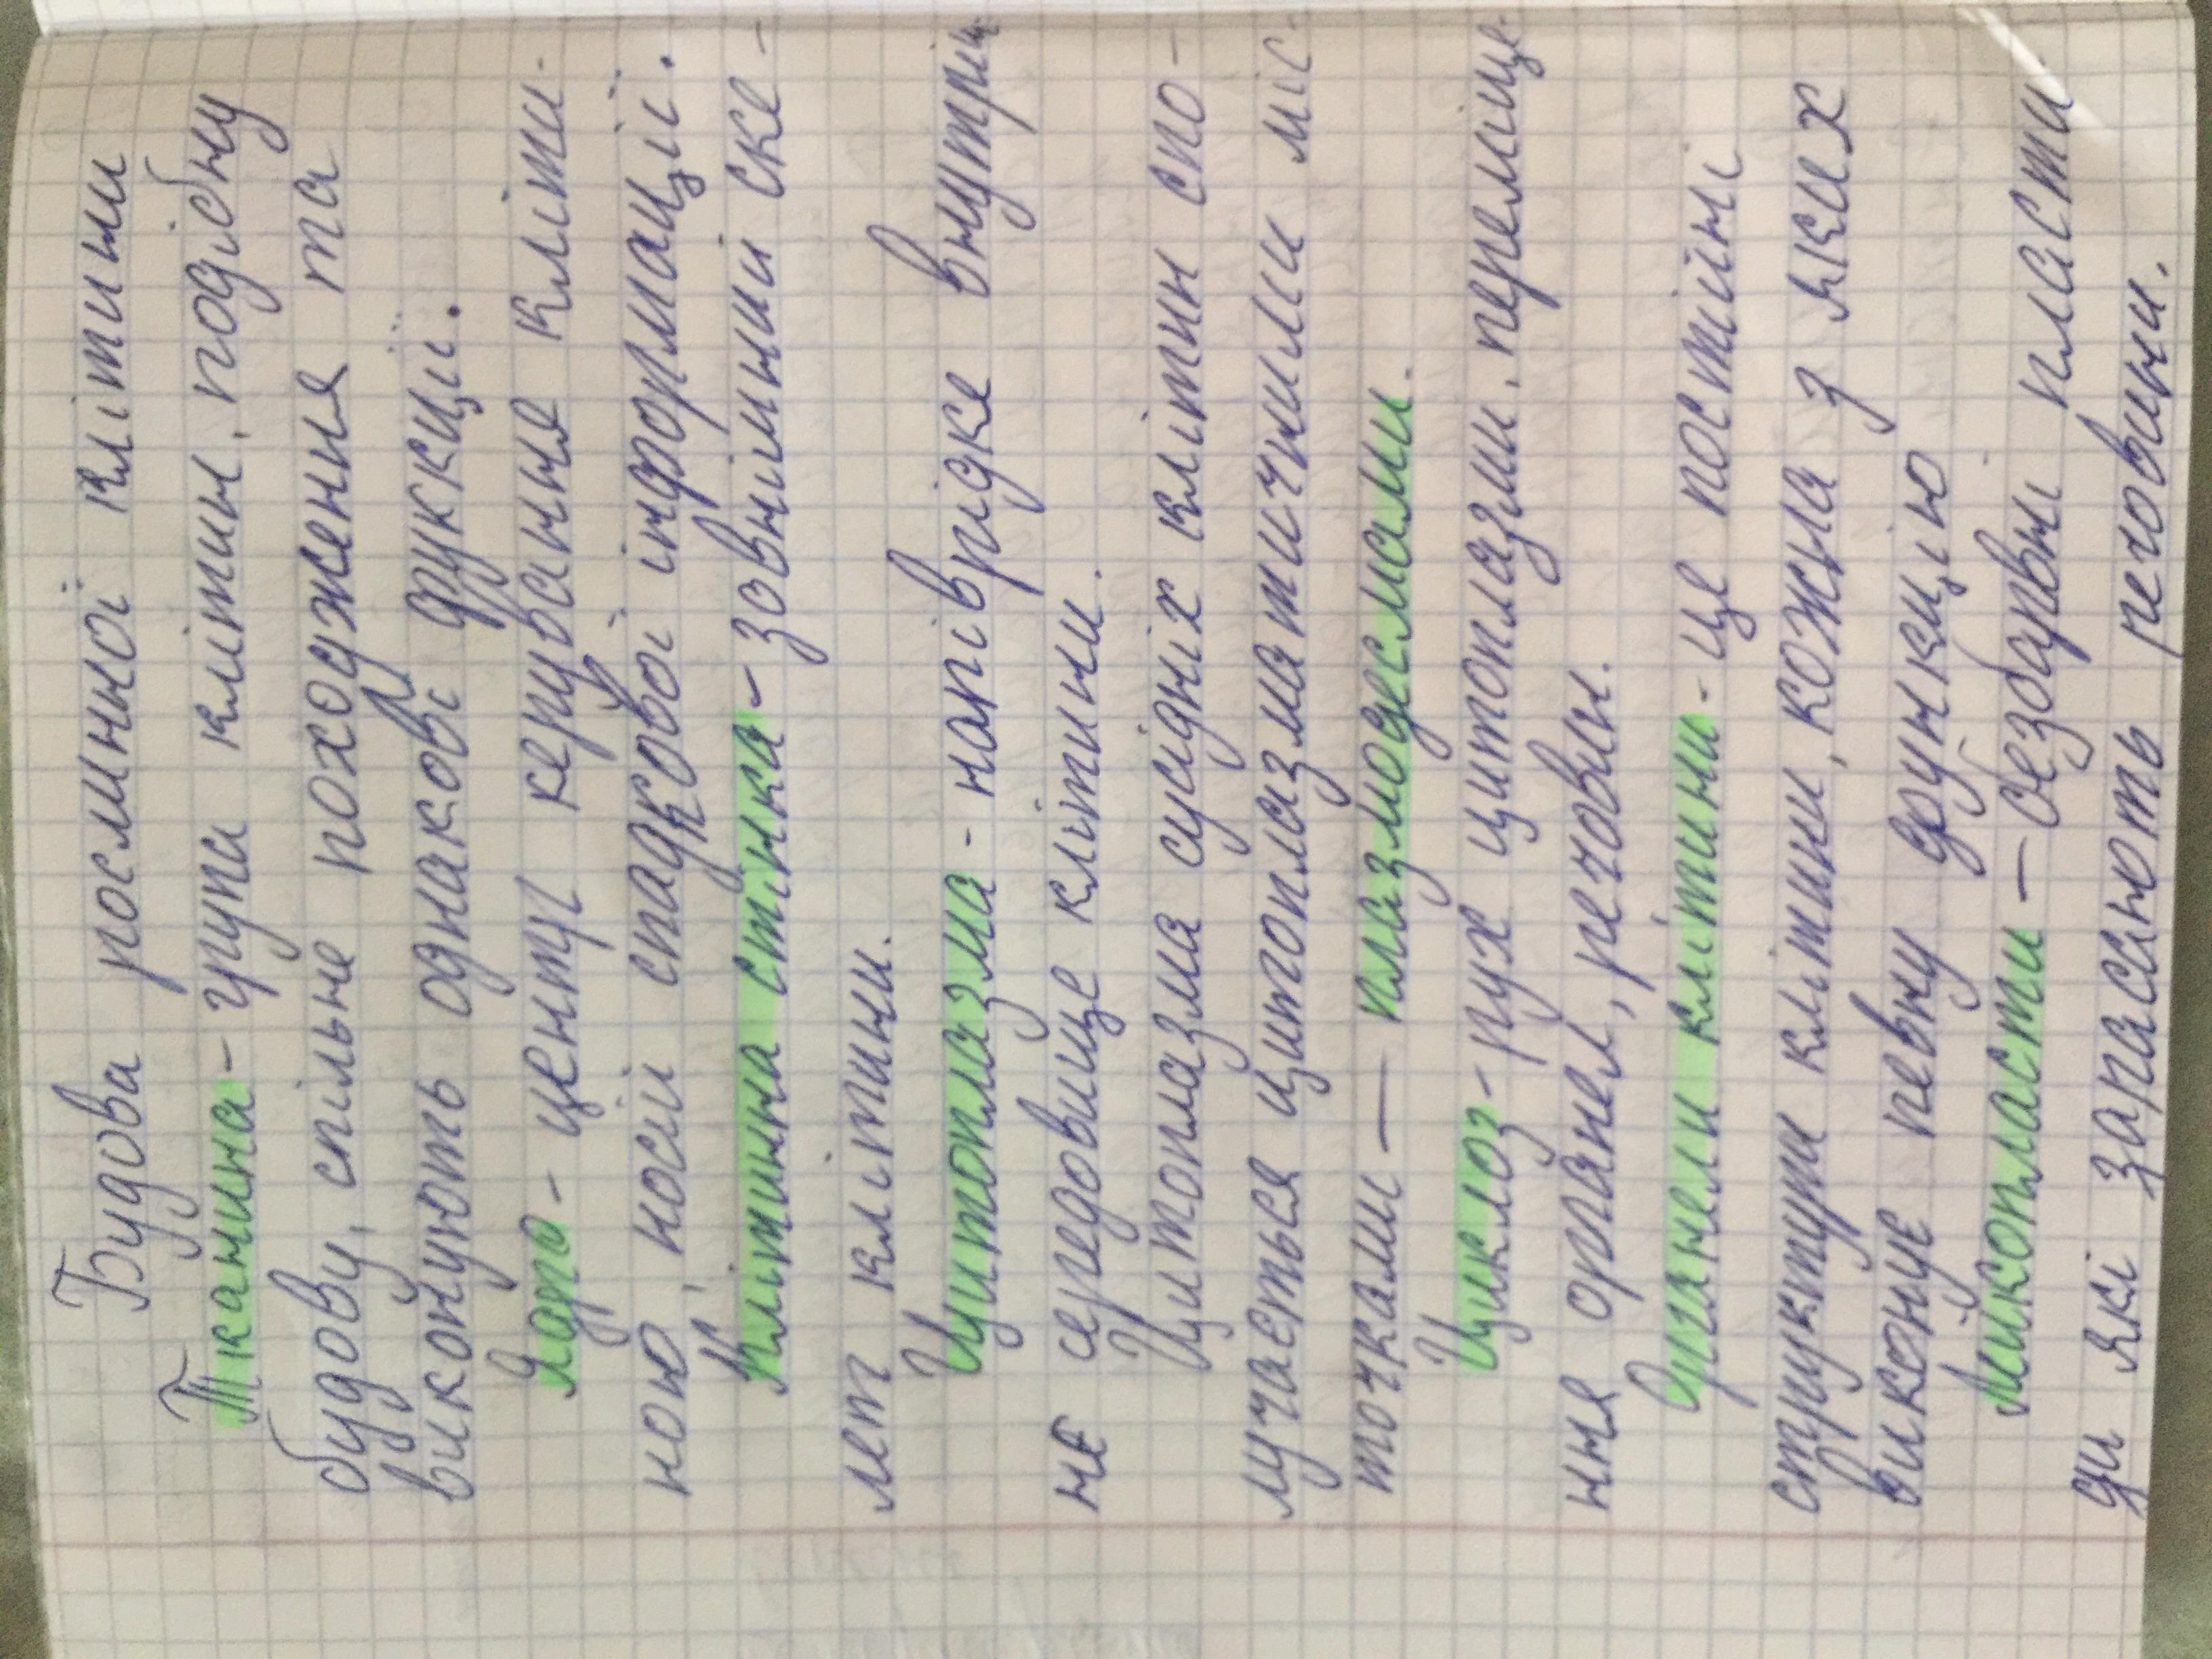 Будова рослинної клітини
Тканина - група клітин, подібну
будову, спільне походження та
виконують однакові функкції.
Ядро - центр керування кліти-
ною, носій спадкової інформації.
Клітинна стінка - зовнішній ске-
лет клітини.
Цитоплазма - напіврідке внутріш
нє середовище клітини.
Цитоплазма сусідніх клітин спо-
лучається цитоплазматичними міс-
точками — плазмодесмами.
Циклоз - рух цитоплазми, переміще-
ння органел, речовин.
Органели клітини - це постійні
структури клітини, кожна з яких
виконує певну функцію
Лейкопласти — безбарвні пласти
ди які запасають речовини.